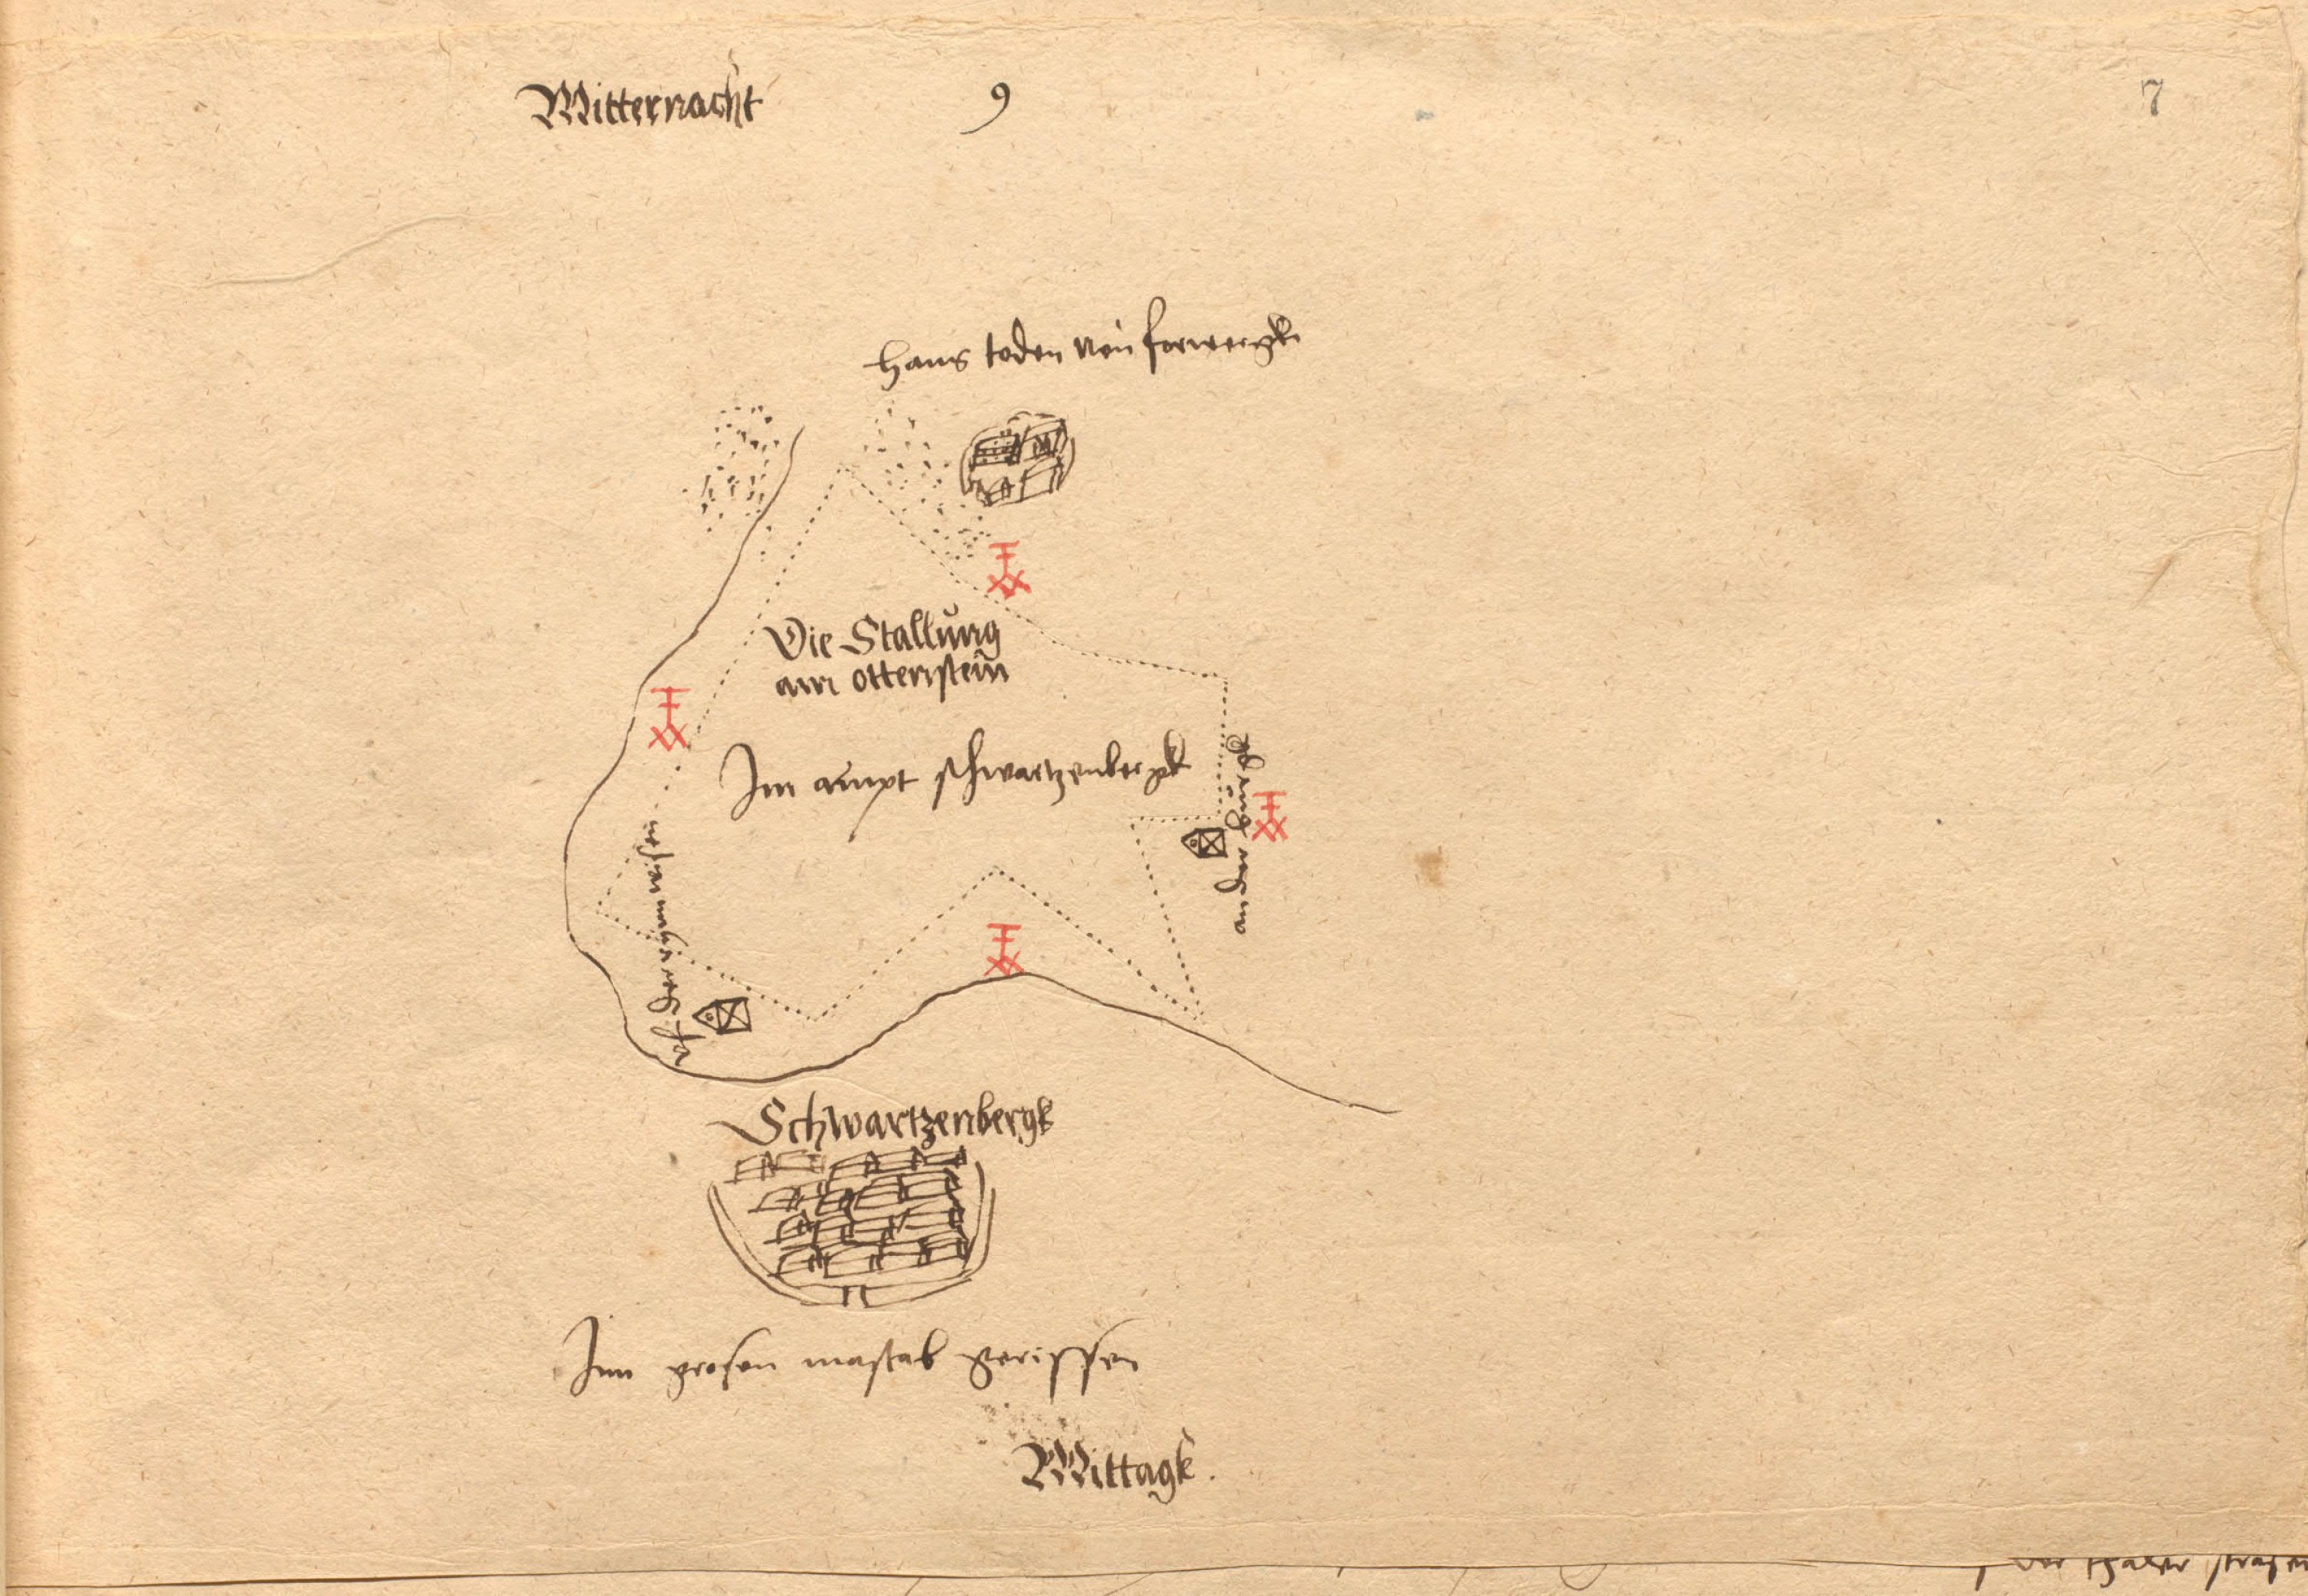 Mitternacht
9
7
Hans toden von forwergk
Die Stallung
am ottenstein
Im ampt schwartzenbergk
Schwartzenbergk
Inn grosen mastab gerissen
Mittagk.
der thaler strasen